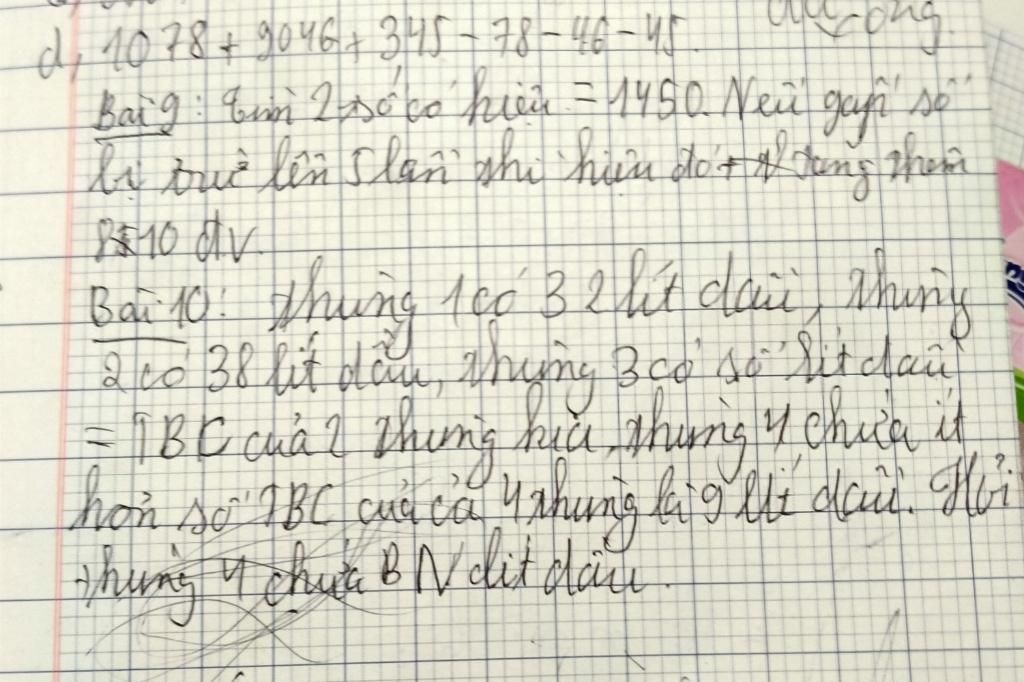 d, 1078 + 9046 + 345 - 78 - 46 - 45.
Bài 9: tìm 2 số có hiệu = 1450. Nếu gấp số
bị trừ lên 5 lần thì hiệu đó tăng thêm
8510 đv.
Bài 10: thùng 1 có 32 lít dầu, thùng
2 có 38 lít dầu, thùng 3 có số lít dầu
= TBC của 2 thùng kia, thùng 4 chứa ít
hơn số TBC của cả 4 thùng là 9 lít dầu. Hỏi
thùng 4 chứa BN lít dầu.